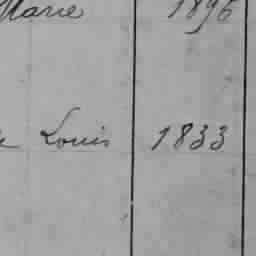 Marie 1896
Louis 1833